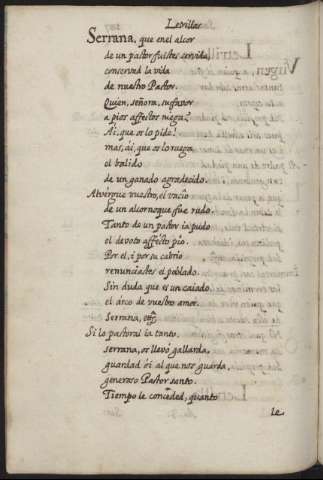 Letrillas
Serrana, que en el alcor
de un pastor fuistes servida,
conserved la vida
de nuestro Pastor.
Quien, señora, su favor
a pios affectos niega?
Ai, que os lo pide!
mas, ai, que os lo ruega
el balido
de un ganado agradecido.
Alvergue vuestro, el vacio
de un alcornoque fue rudo.
Tanto de un pastor ia pudo
el devoto affecto pio.
Por el, i por su cabrio
renunciastes el poblado.
Sin duda que es un caiado
el arco de vuestro amor.
Serrana, etc.
Si lo pastoral ia tanto,
serrana, os llevó gallarda,
guardad oi al que nos guarda,
generoso Pastor santo.
Tiempo le conceded, quanto
le